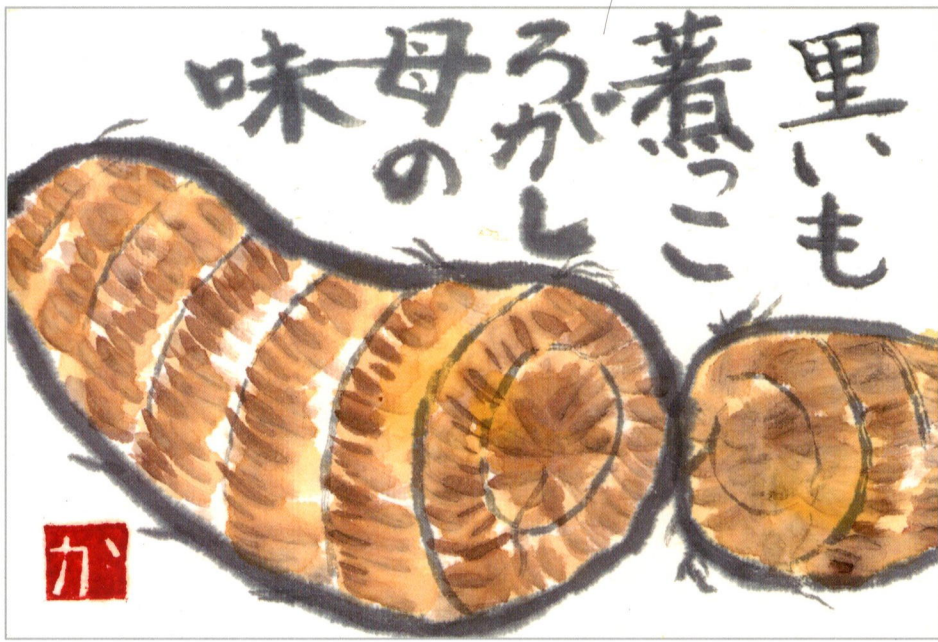 里いも
煮っこ
ろがし
母の
味
か